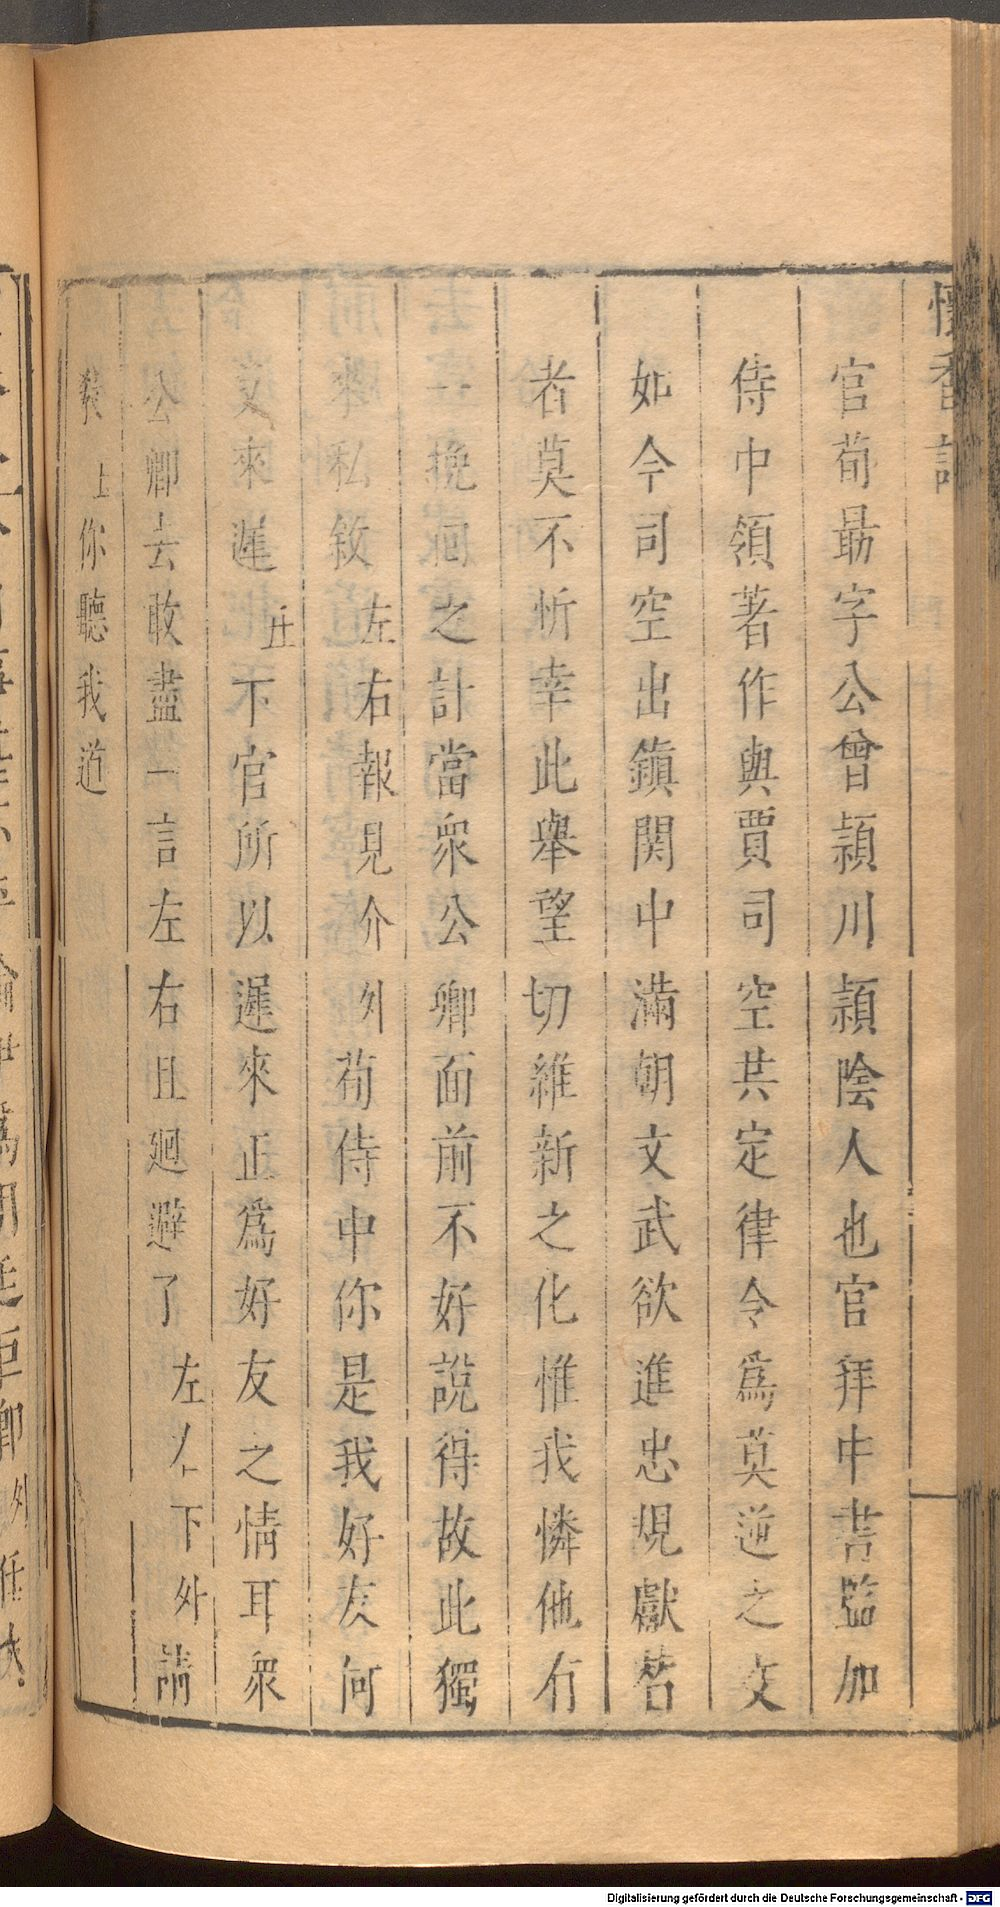 懷香記
官荀勗字公曾頴川頴陰人也官拜中書監加
侍中領著作與賈司空共定律令爲莫逆之文
如今司空出鎭関中滿朝文武欲進忠規獻茗
者莫不忻幸此舉望切維新之化惟我憐他有
一挽囘之計當衆公卿面前不好說得故此獨
來私敘左右報見介外荀侍中你是我好友何
故來遲丑下官所以遲來正爲好友之情耳衆
公卿去敢盡一言左右且廻避了左右下外請
敎上你聽我道
Digitalisierung gefördert durch die Deutsche Forschungsgemeinschaft - DFG